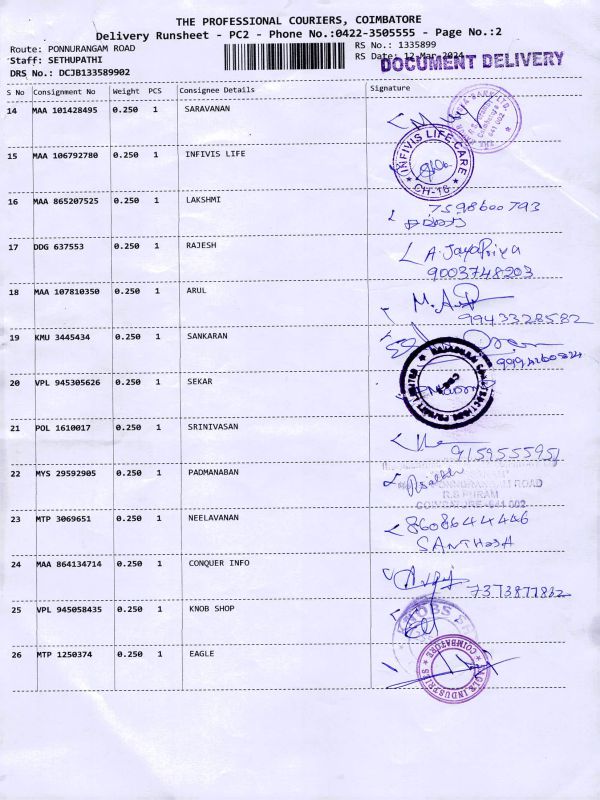 THE PROFESSIONAL COURIERS, COIMBATORE
Delivery Runsheet - PC2 - Phone No.:0422-3505555 - Page No.:2
Route: PONNURANGAM ROAD
RS No.: 1335899
Staff: SETHUPATHI
RS Date: 12-Mar-2024
DOCUMENT DELIVERY
DRS No.: DCJB133589902
S No Consignment No Weight PCS Consignee Details Signature
14 MAA 101428495 0.250 1 SARAVANAN
641 002
15 MAA 106792780 0.250 1 INFIVIS LIFE
INFIVIS LIFE CARE
CH-18
16 MAA 865207525 0.250 1 LAKSHMI
7598600793
17 DDG 637553 0.250 1 RAJESH
A. JayaPriya
9003748203
18 MAA 107810350 0.250 1 ARUL
9943328582
19 KMU 3445434 0.250 1 SANKARAN
20 VPL 945305626 0.250 1 SEKAR
PRIVATE LIMITED
21 POL 1610017 0.250 1 SRINIVASAN
9159555951
22 MYS 29592905 0.250 1 PADMANABAN
PONNURANGAM ROAD
R.S PURAM
COIMBATORE-641 002
23 MTP 3069651 0.250 1 NEELAVANAN
8608644446
SANTHOSH
24 MAA 864134714 0.250 1 CONQUER INFO
25 VPL 945058435 0.250 1 KNOB SHOP
KNOBS
26 MTP 1250374 0.250 1 EAGLE
EAGLE INDUSTRIES
COIMBATORE